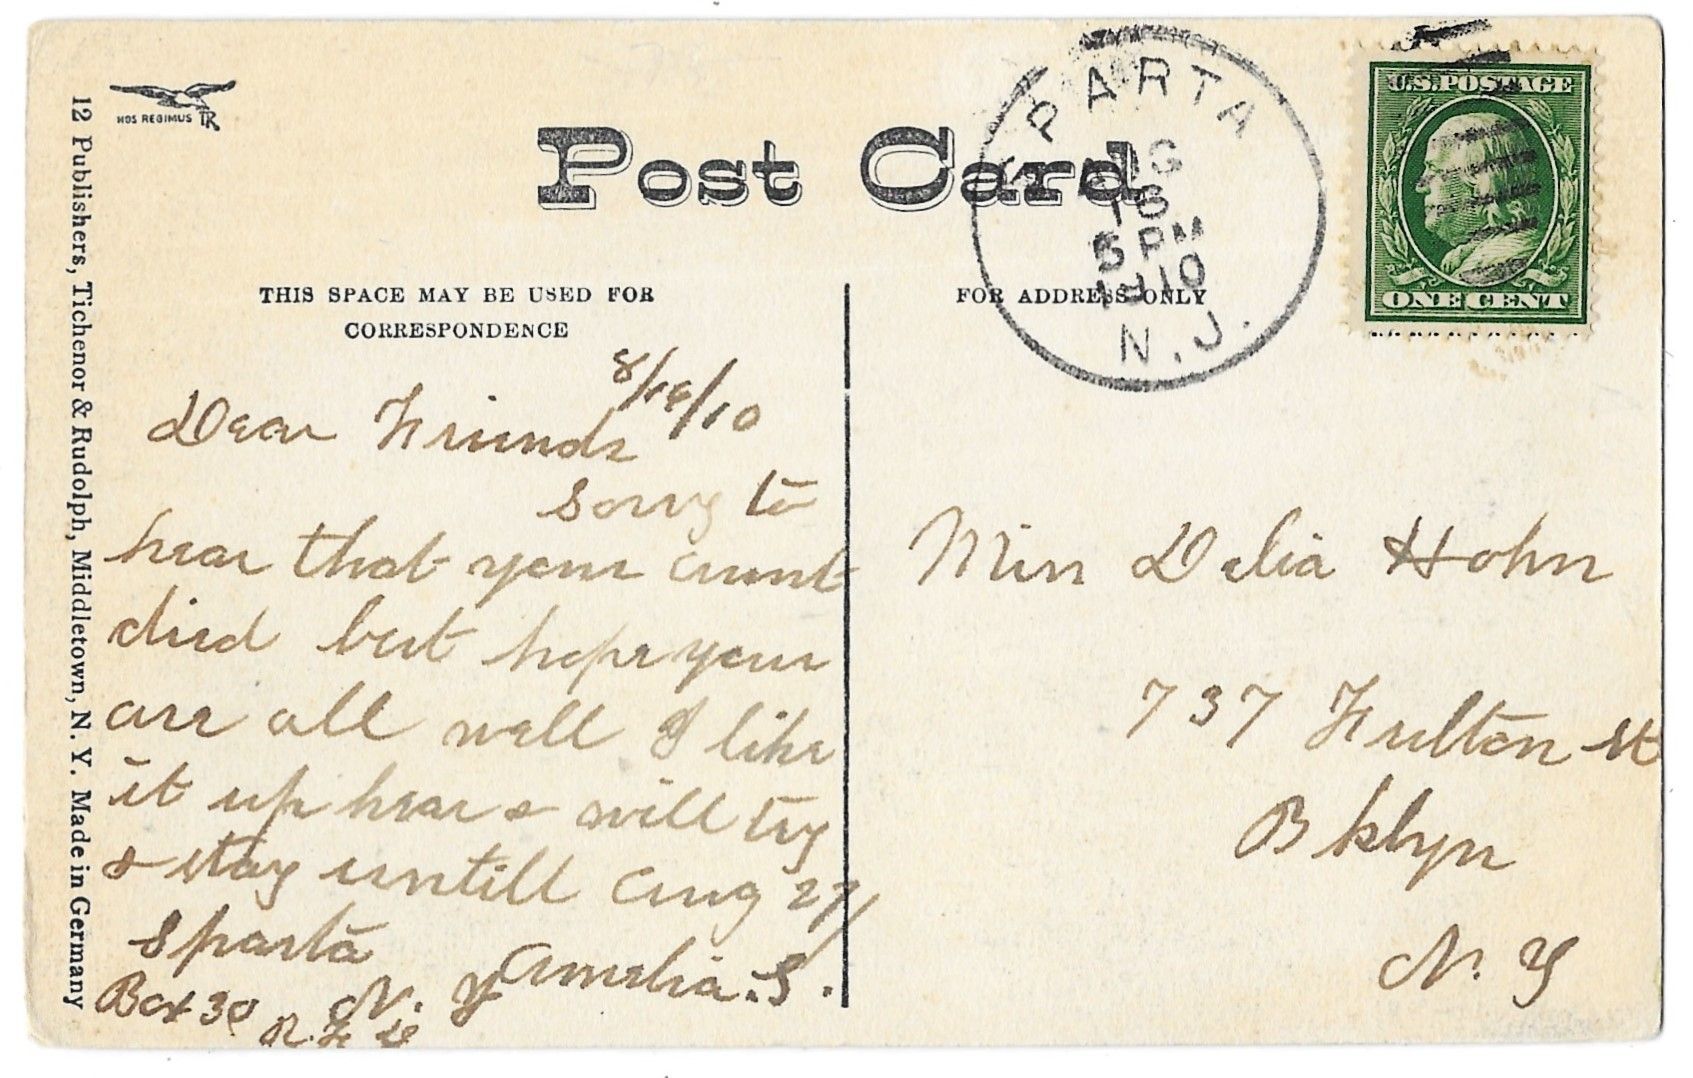 NOS REGIMUS TR
12 Publishers, Tichenor & Rudolph, Middletown, N. Y. Made in Germany
Post Card
THIS SPACE MAY BE USED FOR
CORRESPONDENCE
FOR ADDRESS ONLY
SPARTA
16
5 PM
1910
N.J.
U.S. POSTAGE
ONE CENT
8/16/10
Dear Friends
Sorry to
hear that your aunt
died but hope your
are all well I like
it up hear & will try
& stay untill Aug 27/
Sparta
Amelia. S.
Box 30 N.
R.F.D
Miss Delia Hohn
737 Fulton st
Bklyn
N. Y